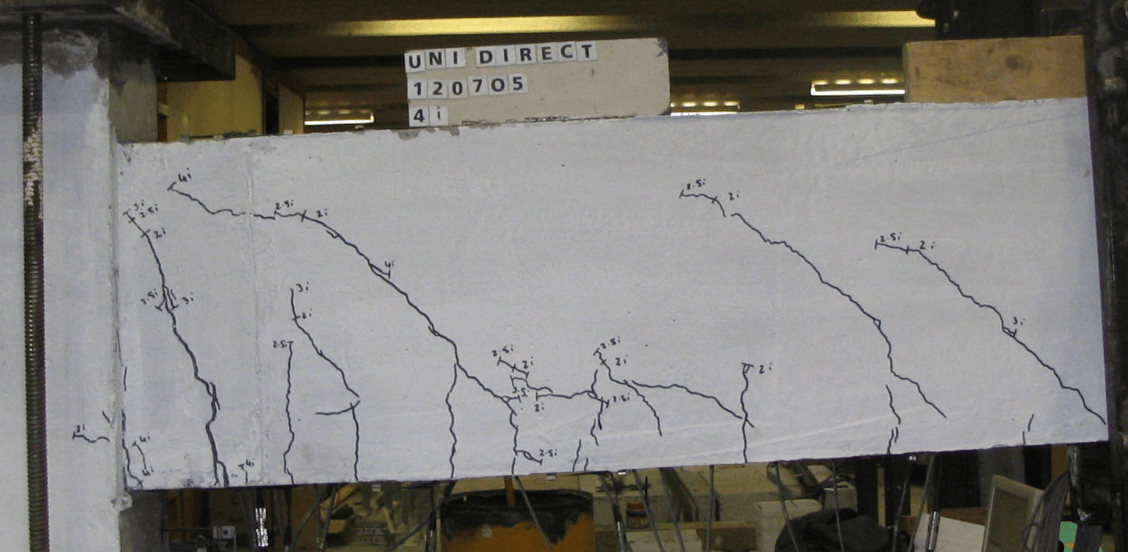 UNI DIRECT
120705
4 i
4i
3i
2.5i
2i
2.5i
2i
4i
3.5i
3i
3i
2i
2.5i
2i
4i
4i
4i
2.5i
2i
3.5i
2i
2.5i
2i
3.5i
2.5i
2i
2i
2.5i
2i
3i